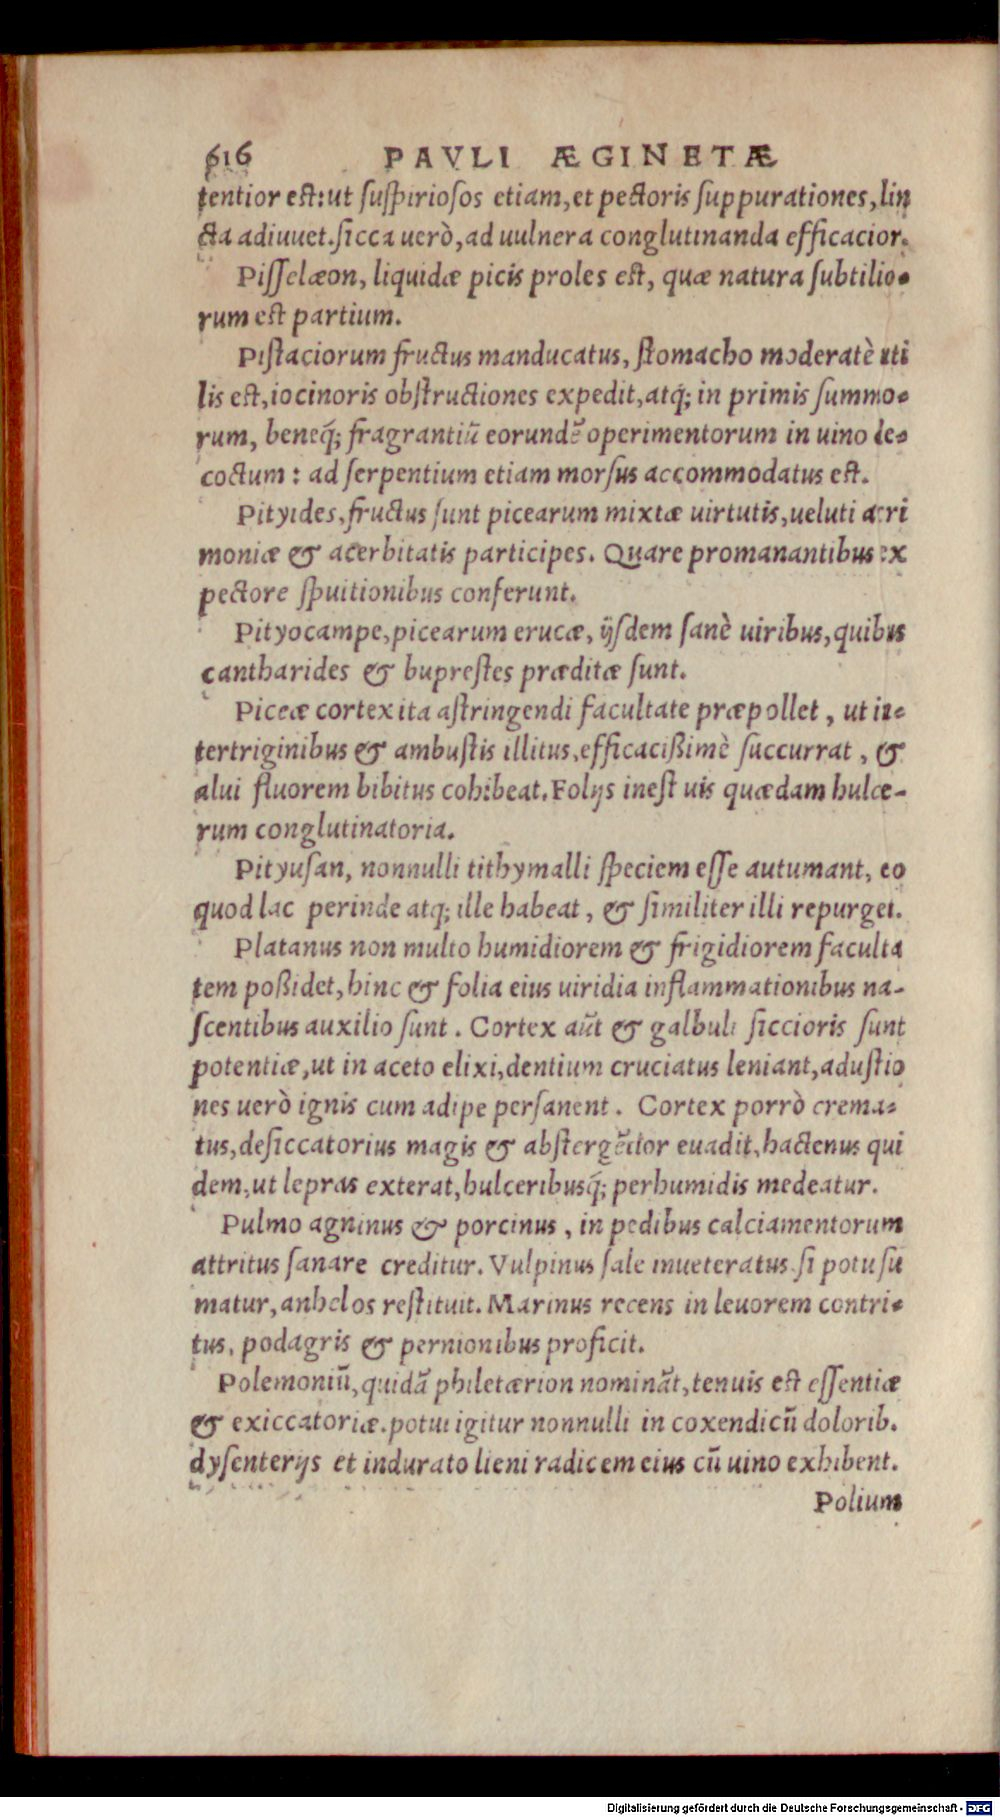 616 PAVLI ÆGINETÆ
tentior est: ut suspiriosos etiam, et pectoris suppurationes, lin
cta adiuuet. sicca uerò, ad uulnera conglutinanda efficacior.
Pisselæon, liquidæ picis proles est, quæ natura subtilio-
rum est partium.
Pistaciorum fructus manducatus, stomacho moderatè uti
lis est, iocinoris obstructiones expedit, atq; in primis summo-
rum, beneq́; fragrantiũ eorundẽ operimentorum in uino de-
coctum : ad serpentium etiam morsus accommodatus est.
Pityides, fructus sunt picearum mixtæ uirtutis, ueluti acri
moniæ & acerbitatis participes. Quare promanantibus ex
pectore spuitionibus conferunt.
Pityocampe, picearum erucæ, ijsdem sanè uiribus, quibus
cantharides & buprestes præditæ sunt.
Piceæ cortex ita astringendi facultate præpollet, ut in-
tertriginibus & ambustis illitus, efficacißimè succurrat, &
alui fluorem bibitus cohibeat. Folijs inest uis quædam hulce-
rum conglutinatoria.
Pityusan, nonnulli tithymalli speciem esse autumant, eo
quod lac perinde atq; ille habeat, & similiter illi repurget.
Platanus non multo humidiorem & frigidiorem faculta
tem poßidet, hinc & folia eius uiridia inflammationibus na-
scentibus auxilio sunt. Cortex aũt & galbuli siccioris sunt
potentiæ, ut in aceto elixi, dentium cruciatus leniant, adustio
nes uerò ignis cum adipe persanent. Cortex porrò crema-
tus, desiccatorius magis & abstergẽtior euadit, hactenus qui
dem, ut lepras exterat, hulceribusq́; perhumidis medeatur.
Pulmo agninus & porcinus, in pedibus calciamentorum
attritus sanare creditur. Vulpinus sale inueteratus si potu su
matur, anhelos restituit. Marinus recens in leuorem contri-
tus, podagris & pernionibus proficit.
Polemoniũ, quidã philetærion nominãt, tenuis est essentiæ
& exiccatoriæ. potui igitur nonnulli in coxendicũ dolorib.
dysenterijs et indurato lieni radicem eius cũ uino exhibent.
Polium
Digitalisierung gefördert durch die Deutsche Forschungsgemeinschaft - DFG